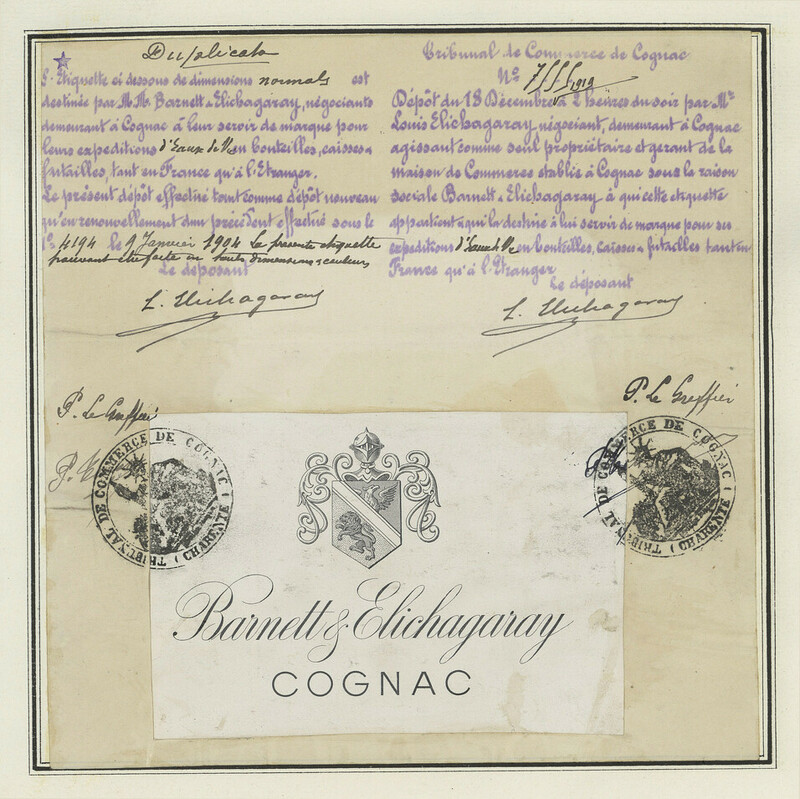 Duplicata
L'Etiquette ci dessous de dimensions normales est
destinée par M.M. Barnett & Elichagaray, négociants
demeurant à Cognac à leur servir de marque pour
leurs expeditions d'Eaux de Vie en bouteilles, caisses &
futailles, tant en France qu'à l'Etranger.
Le présent dépôt effectué tant comme dépôt nouveau
qu'en renouvellement d'un précédent effectué sous le
4194 le 9 Janvier 1904 la presente etiquette
pouvant être faite en toutes dimensions & couleurs
Le déposant
L. Elichagaray
Tribunal de Commerce de Cognac
Nº 1919
Dépôt du 18 Décembre à 2 heures du soir par Mr
Louis Elichagaray négociant, demeurant à Cognac
agissant comme seul propriétaire et gerant de la
maison de Commerce etablie à Cognac sous la raison
sociale Barnett & Elichagaray à qui cette etiquette
appartient & qui la destine à lui servir de marque pour ses
expeditions d'Eaux de Vie en bouteilles, caisses & futailles tant en
France qu'à l'Etranger
Le déposant
L. Elichagaray
P. Le Greffier
P. Le Greffier
TRIBUNAL DE COMMERCE DE COGNAC (CHARENTE)
TRIBUNAL DE COMMERCE DE COGNAC (CHARENTE)
Barnett & Elichagaray
COGNAC